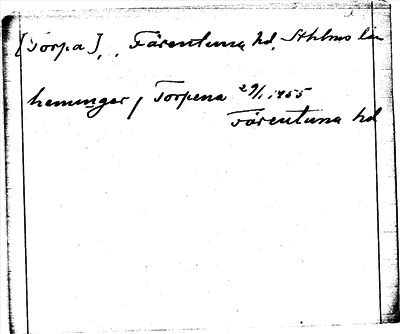 [Torpa], Färentuna hd, Sthlms län
heminger i Torpena 29/1 1455
Färentuna hd